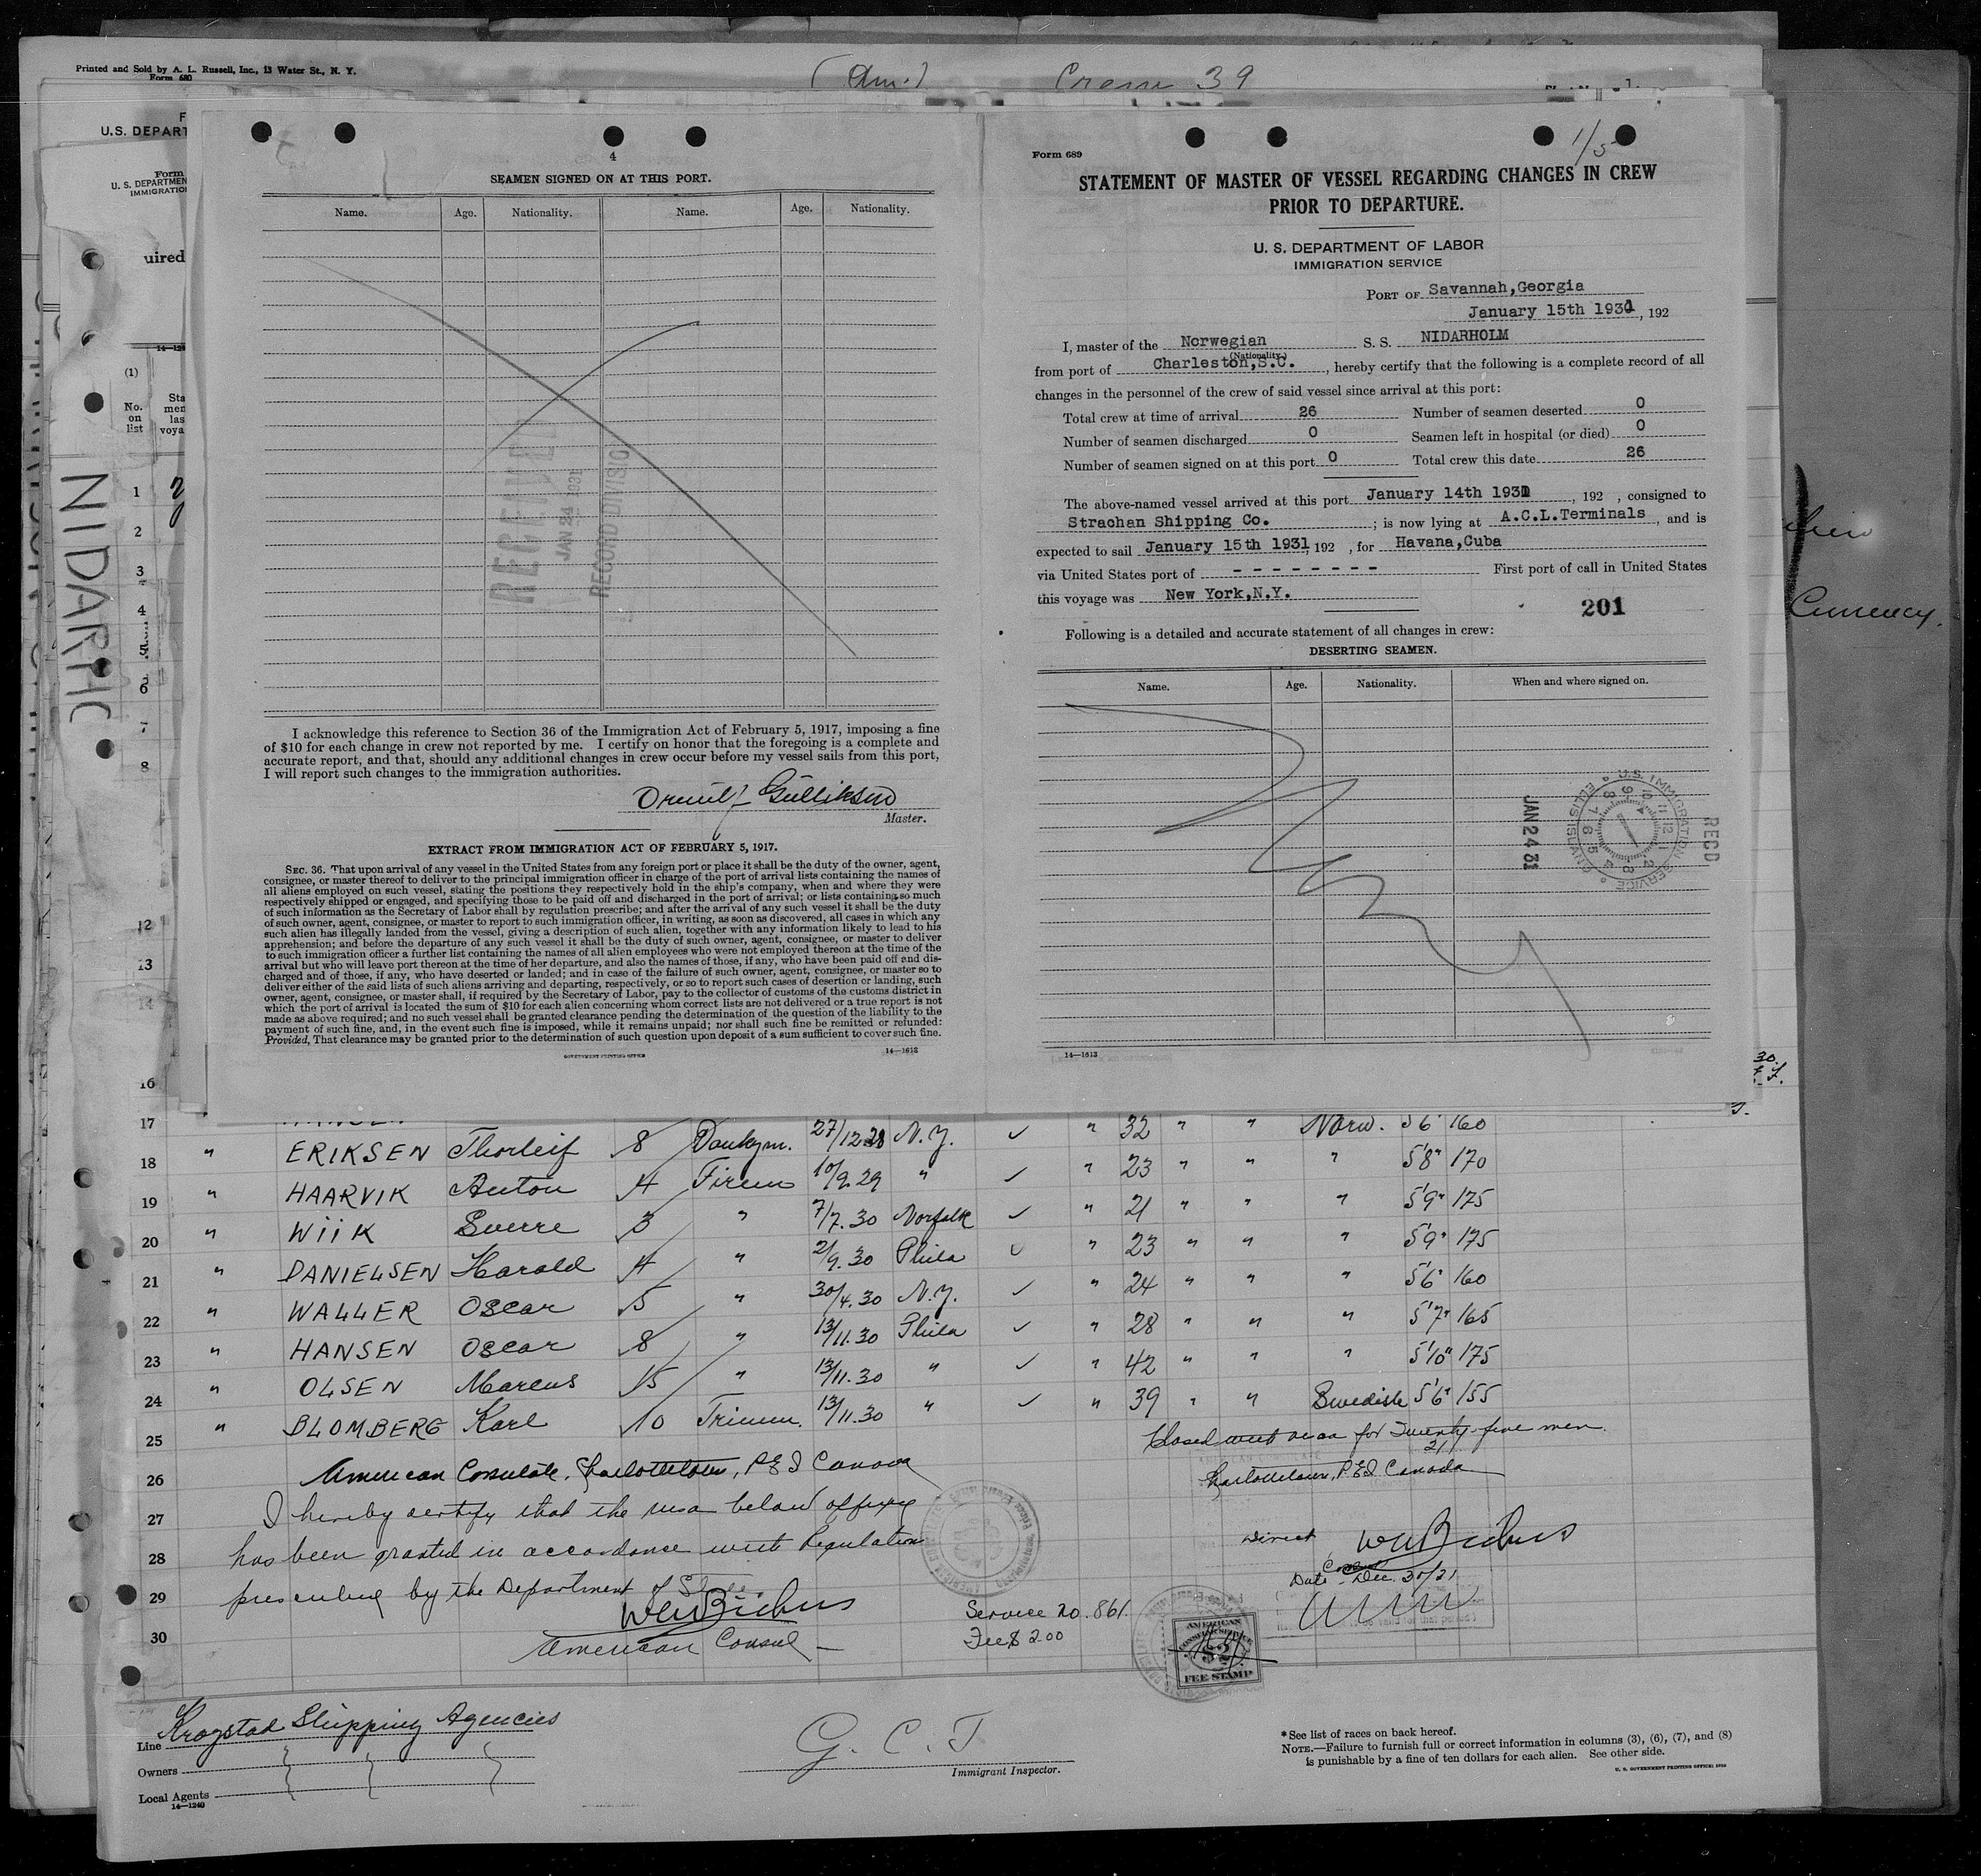 Printed and Sold by A. L. Russell, Inc., 13 Water St., N. Y.
Form 680
U.S. DEPART
Form
U. S. DEPARTMEN
IMMIGRATIO
uired
14—124
(1)
No. on list
Sta
men
las
voya
NIDARHO
1
2
3
4
5
6
7
8
12
13
14
16
4
SEAMEN SIGNED ON AT THIS PORT.
Name. Age. Nationality. Name. Age. Nationality.
RECEIVED
JAN 24 1931
RECORD DIVISION
I acknowledge this reference to Section 36 of the Immigration Act of February 5, 1917, imposing a fine
of $10 for each change in crew not reported by me. I certify on honor that the foregoing is a complete and
accurate report, and that, should any additional changes in crew occur before my vessel sails from this port,
I will report such changes to the immigration authorities.
Gulliksen
Master.
EXTRACT FROM IMMIGRATION ACT OF FEBRUARY 5, 1917.
SEC. 36. That upon arrival of any vessel in the United States from any foreign port or place it shall be the duty of the owner, agent,
consignee, or master thereof to deliver to the principal immigration officer in charge of the port of arrival lists containing the names of
all aliens employed on such vessel, stating the positions they respectively hold in the ship's company, when and where they were
respectively shipped or engaged, and specifying those to be paid off and discharged in the port of arrival; or lists containing so much
of such information as the Secretary of Labor shall by regulation prescribe; and after the arrival of any such vessel it shall be the duty
of such owner, agent, consignee, or master to report to such immigration officer, in writing, as soon as discovered, all cases in which any
such alien has illegally landed from the vessel, giving a description of such alien, together with any information likely to lead to his
apprehension; and before the departure of any such vessel it shall be the duty of such owner, agent, consignee, or master to deliver
to such immigration officer a further list containing the names of all alien employees who were not employed thereon at the time of the
arrival but who will leave port thereon at the time of her departure, and also the names of those, if any, who have been paid off and dis-
charged and of those, if any, who have deserted or landed; and in case of the failure of such owner, agent, consignee, or master so to
deliver either of the said lists of such aliens arriving and departing, respectively, or so to report such cases of desertion or landing, such
owner, agent, consignee, or master shall, if required by the Secretary of Labor, pay to the collector of customs of the customs district in
which the port of arrival is located the sum of $10 for each alien concerning whom correct lists are not delivered or a true report is not
made as above required; and no such vessel shall be granted clearance pending the determination of the question of the liability to the
payment of such fine, and, in the event such fine is imposed, while it remains unpaid; nor shall such fine be remitted or refunded:
Provided, That clearance may be granted prior to the determination of such question upon deposit of a sum sufficient to cover such fine.
GOVERNMENT PRINTING OFFICE 14—1613
39
1/5
Form 689
STATEMENT OF MASTER OF VESSEL REGARDING CHANGES IN CREW
PRIOR TO DEPARTURE.
U. S. DEPARTMENT OF LABOR
IMMIGRATION SERVICE
PORT OF Savannah,Georgia
January 15th 1931, 192
I, master of the Norwegian S. S. NIDARHOLM
(Nationality.)
from port of Charleston,S.C., hereby certify that the following is a complete record of all
changes in the personnel of the crew of said vessel since arrival at this port:
Total crew at time of arrival 26 Number of seamen deserted 0
Number of seamen discharged 0 Seamen left in hospital (or died) 0
Number of seamen signed on at this port 0 Total crew this date 26
The above-named vessel arrived at this port January 14th 1931, 192 , consigned to
Strachan Shipping Co. ; is now lying at A.C.L.Terminals, and is
expected to sail January 15th 1931, 192 , for Havana,Cuba
via United States port of - - - - - - - - First port of call in United States
this voyage was New York,N.Y.
201
Following is a detailed and accurate statement of all changes in crew:
DESERTING SEAMEN.
Name. Age. Nationality. When and where signed on.
U.S. IMMIGRATION SERVICE ELLIS ISLAND
JAN 24 31
RECD
14—1613
Currency.
17 ERIKSEN Thorleif 8 Donkym. 27/12 28 N.Y. " 32 " " Norw. 5'6" 160
18 " HAARVIK Anton 4 Firem 10/9.29 " " 23 " " " 5'8" 170
19 " WiiK Sverre 3 " 7/7.30 Norfolk " 21 " " " 5'9" 175
20 " DANIELSEN Harald 4 " 2/9.30 Phila " 23 " " " 5'9" 175
21 " WALLER Oscar 5 " 30/4.30 N.Y. " 24 " " " 5'6" 160
22 " HANSEN Oscar 8 " 13/11.30 Phila " 28 " " " 5'7" 165
23 " OLSEN Marcus 15 " 13/11.30 " " 42 " " " 5'10" 175
24 " BLOMBERG Karl 10 Trimm. 13/11.30 " " 39 " " Swedish 5'6" 155
25 Closed visa for Twenty-five men
26 American Consulate, Charlottetown, P.E.I Canada
Charlottetown, P.E.I Canada
27 I hereby certify that the visa below affixed
28 has been granted in accordance with Regulation
29 prescribed by the Department of State.
30 American Consul
Service no. 861
Fee $ 2.00
Direct
Consul
Date
AMERICAN
CONSULAR SERVICE
$2
FEE STAMP
Line Krogstad Shipping Agencies
Owners
Local Agents
14—1240
G. C. T
Immigrant Inspector.
*See list of races on back hereof.
NOTE.—Failure to furnish full or correct information in columns (3), (6), (7), and (8)
is punishable by a fine of ten dollars for each alien. See other side.
U. S. GOVERNMENT PRINTING OFFICE: 1930